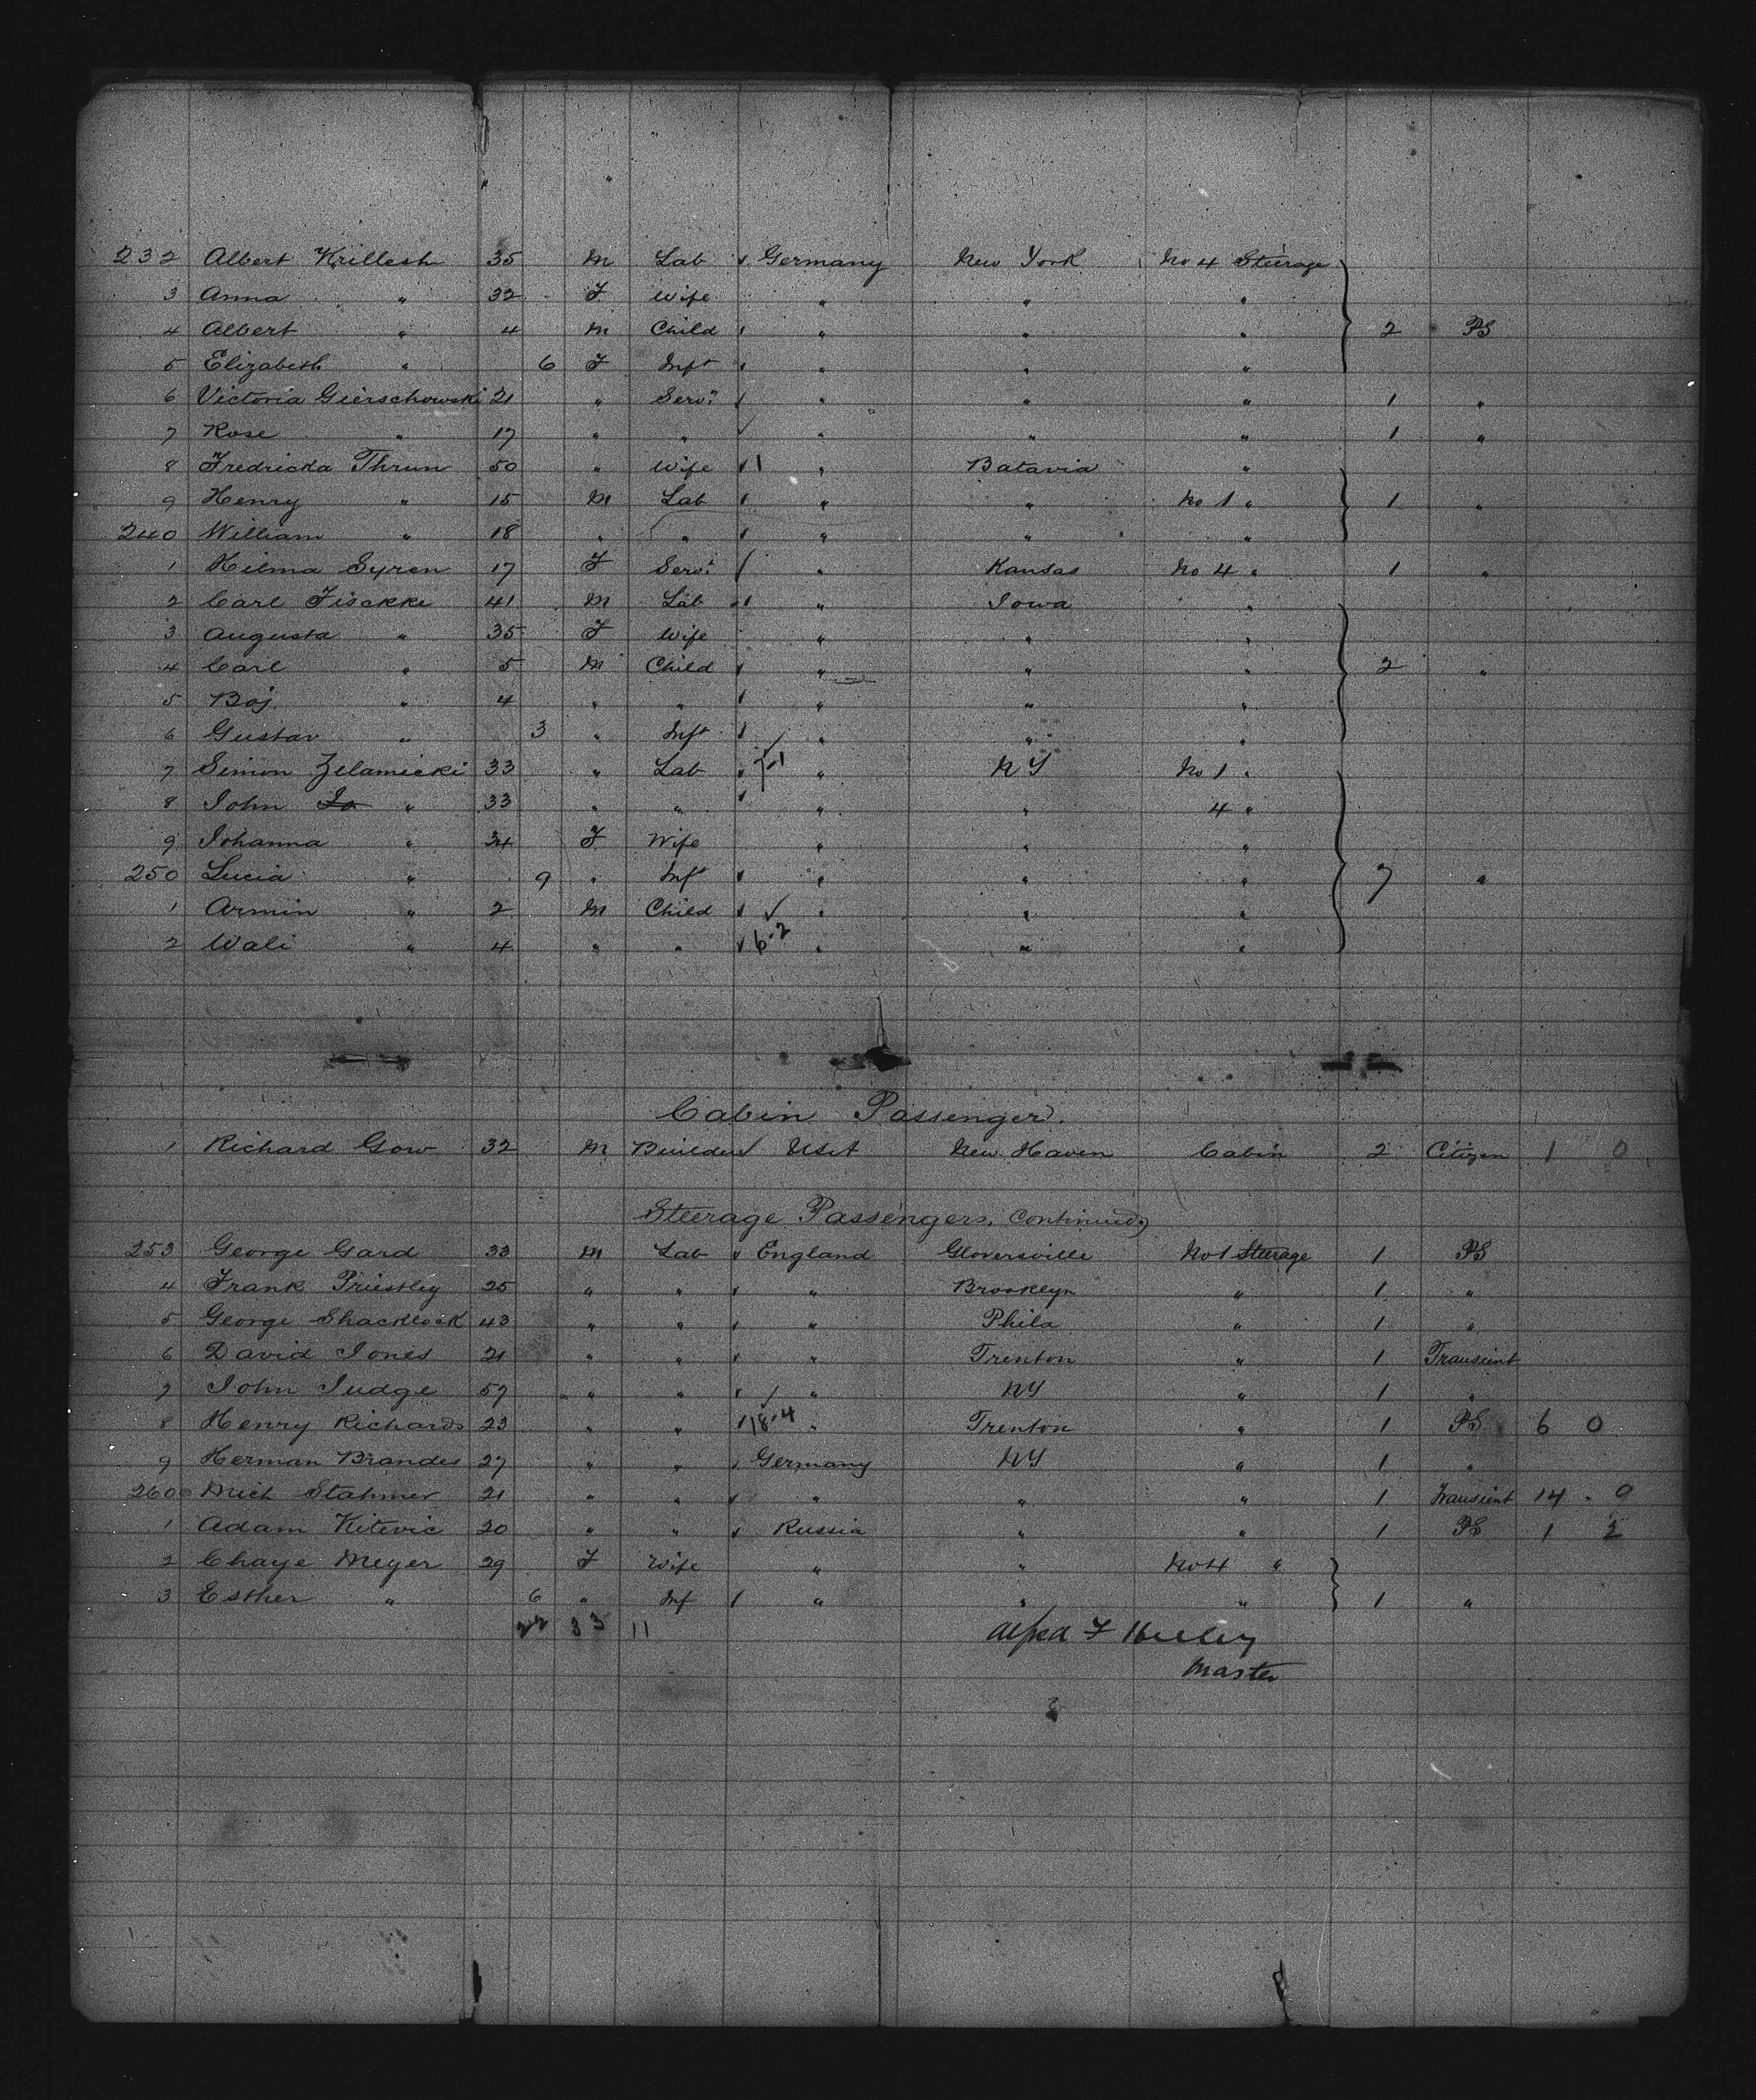 232 Albert Krillesh 35 M Lab Germany New York No 4 Steerage
3 Anna " 32 F Wife " " "
4 Albert " 4 M Child " " " 2 PS
5 Elizabeth " 6 F Inft " " "
6 Victoria Gierschowski 21 " Servt " " " 1 "
7 Rose " 17 " " " " " 1 "
8 Fredricka Thrun 50 " Wife 1 " Batavia "
9 Henry " 15 M Lab " " No 1 " 1 "
240 William " 18 " " " " "
1 Hilma Syren 17 F Servt " Kansas No 4 " 1 "
2 Carl Fisckke 41 M Lab " Iowa "
3 Augusta " 35 F Wife " " "
4 Carl " 5 M Child " " " 2 "
5 Boj " 4 " " " " "
6 Gustav " 3 " Inft " " "
7 Simon Zelamicki 33 " Lab 7-1 " NY No 1 "
8 John Jo " 33 " " " " 4 "
9 Johanna " 34 F Wife " " "
250 Lucia " 9 " Inft " " " 7 "
1 Armin " 2 M Child " " "
2 Wali " 4 " " 6-2 " " "
Cabin Passenger.
1 Richard Gow 32 M Builder USA New Haven Cabin 2 Citizen 1 0
Steerage Passengers, Continued
253 George Gard 33 M Lab England Gloversville No 1 Steerage 1 PS
4 Frank Priestley 25 " " " Brooklyn " 1 "
5 George Shacklock 43 " " " Phila " 1 "
6 David Jones 21 " " " Trenton " 1 Transient
7 John Judge 57 " " " NY " 1 "
8 Henry Richards 23 " " 18-4 " Trenton " 1 PS 6 0
9 Herman Brandes 27 " " Germany NY " 1 "
260 Mich Stahmer 21 " " " " " 1 Transient 14 - 0
1 Adam Kitevic 20 " " Russia " " 1 PS 1 2
2 Chaye Meyer 29 F Wife " " No 4 "
3 Esther " 6 " Inf " " " 1 "
22 33 11
Alfred F
Master